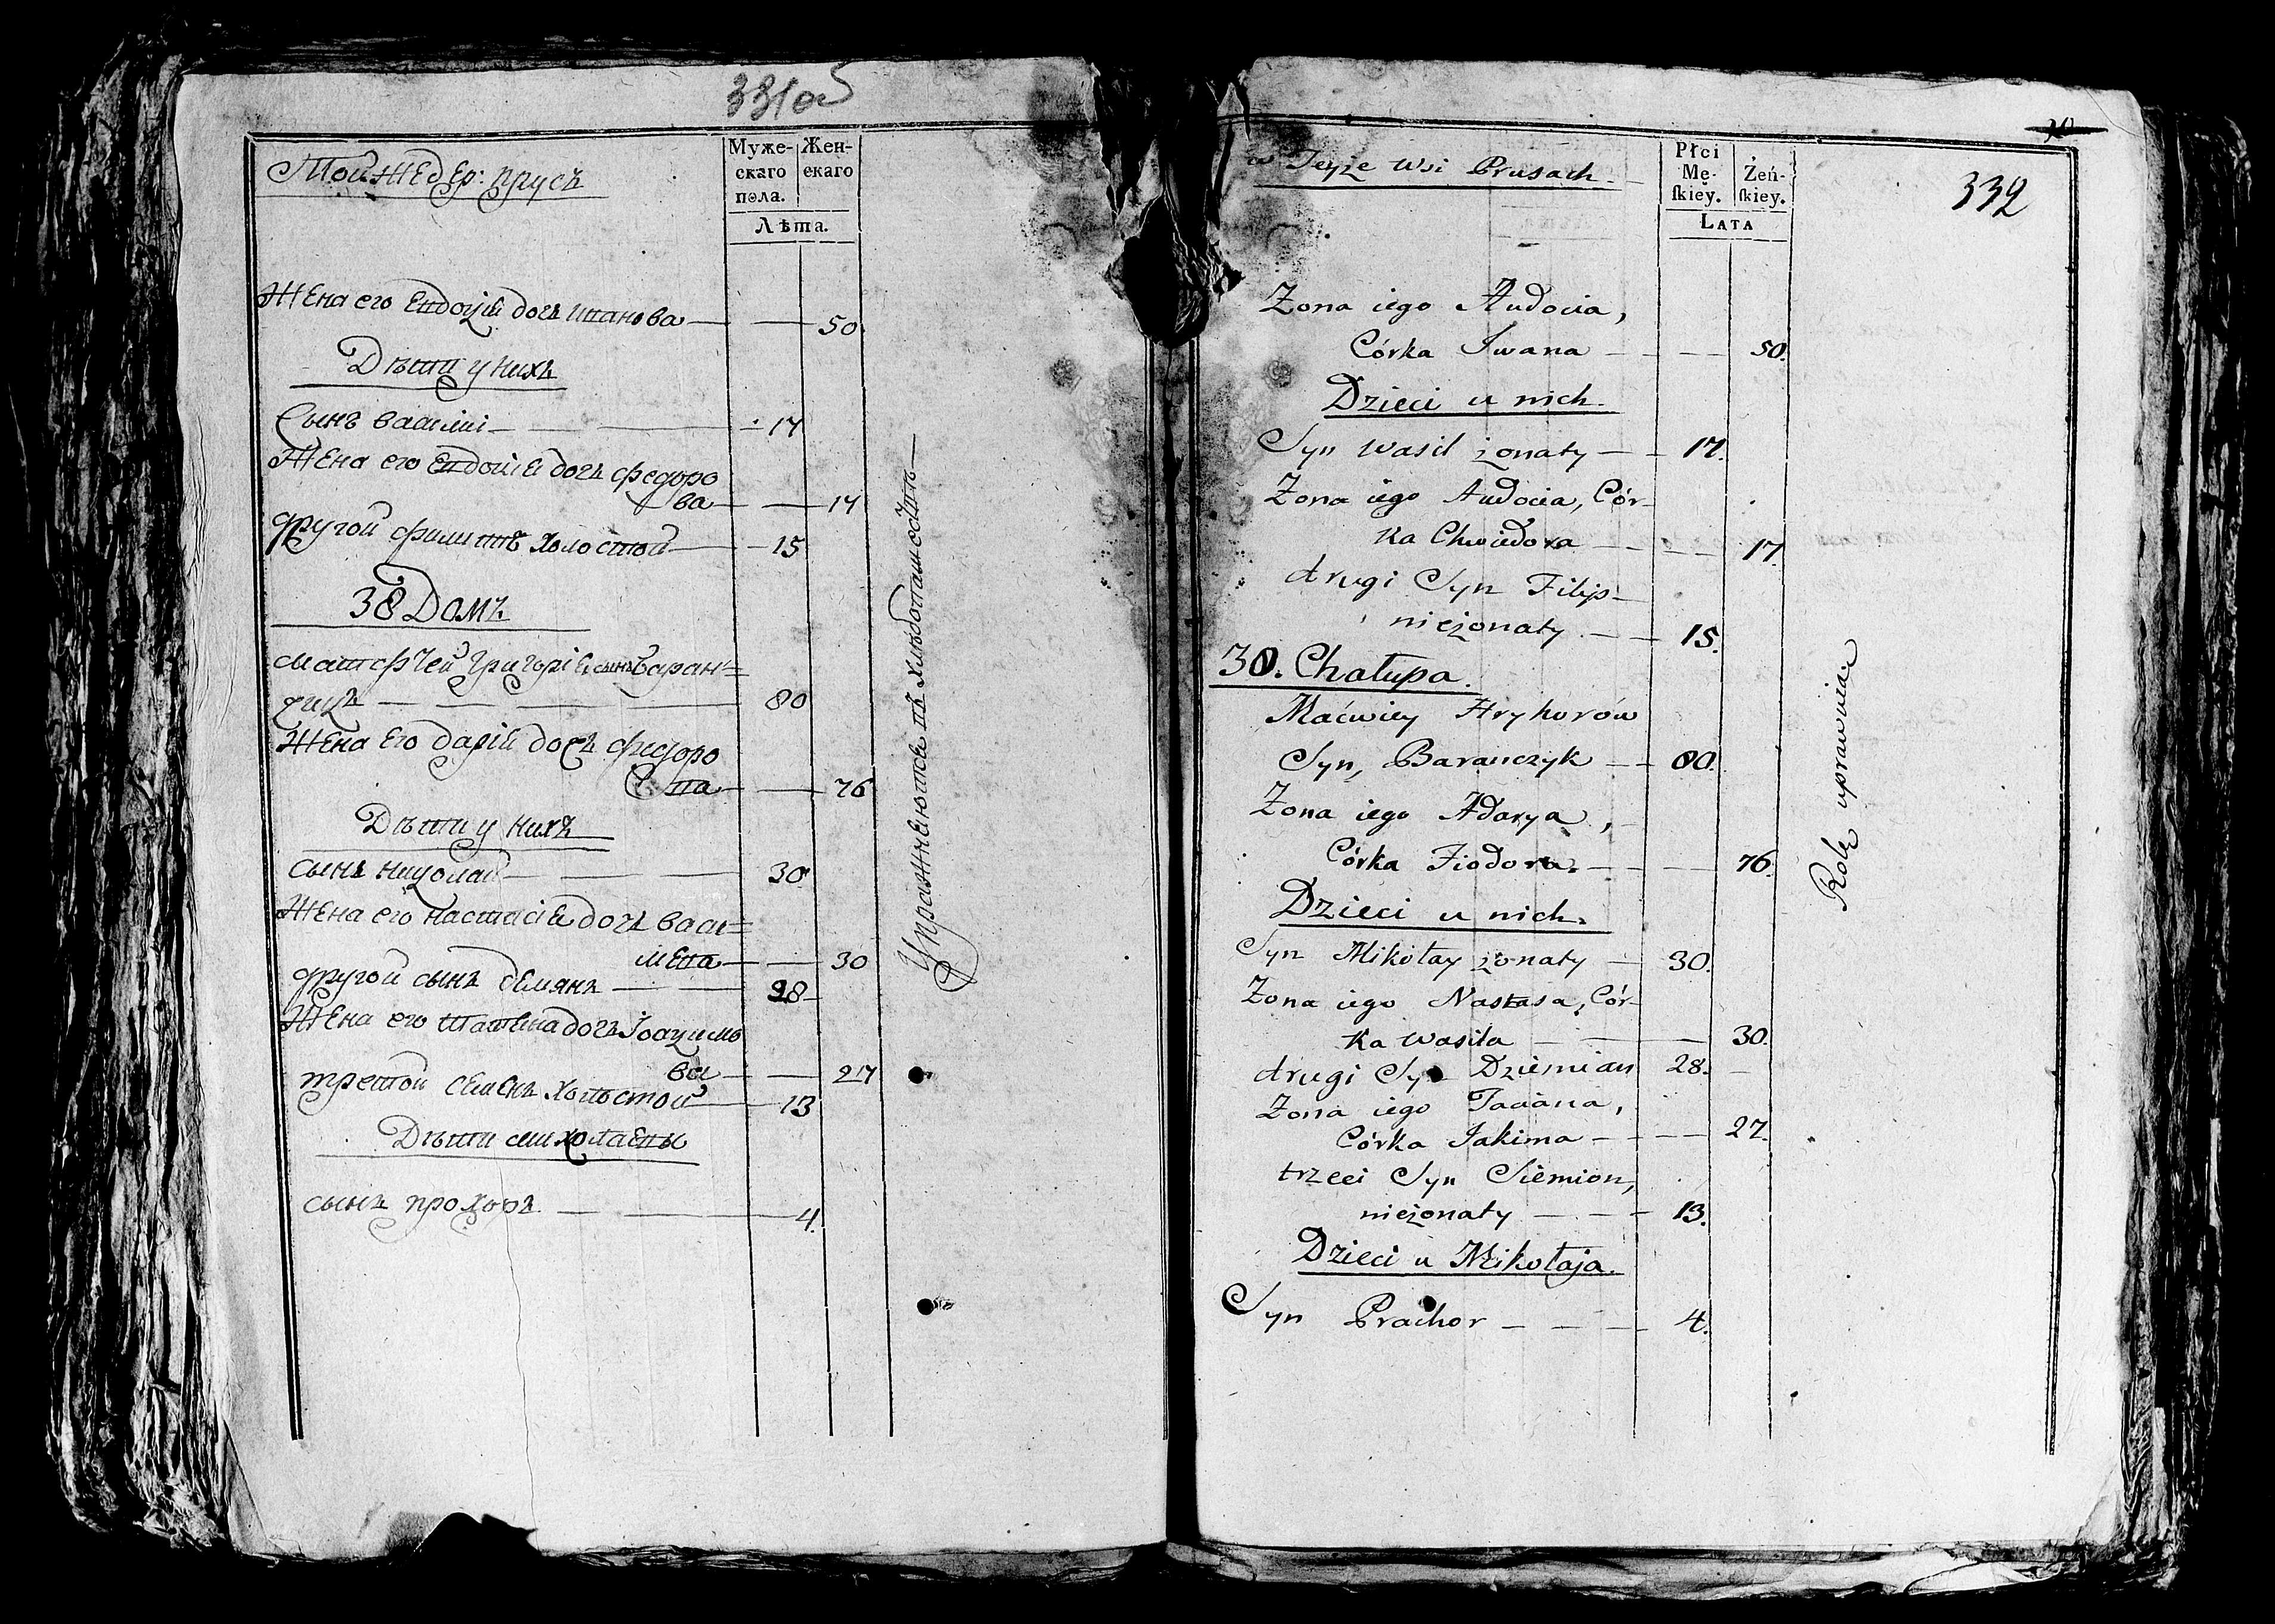 331об
Тойже дер: прусъ
Муже-
скаго
пола.
Жен-
скаго
Лѣта.
Жена его Евдокия дочь иванова — — 50
Дѣти у нихъ
Сынъ василий — — 17
Жена его евдокия дочь федоро
ва — — 17
другой филиппъ холостой — — 15
38 Домъ
матфѣей григориевъ сынъ баран-
чикъ — — — 80
жена его дария дочь федоро
ва — — 76
Дѣти у нихъ
сынъ николай — — 30
Жена его настасия дочь васи-
лева — — 30
другой сынъ демянъ — — 28
Жена его татяна дочь Иоакимо
ва — — 27
третой семенъ холостой — 13
Дѣти миколаевы
сынъ прохоръ — — 4.
Упражняются въ хлебопашостве —
30
332
w Teyże wsi Prusach.
Płci
Mę-
ſkiey.
Żeń-
ſkiey.
LATA
Zona iego Audocia,
Córka Iwana — — — 50.
Dzieci u nich.
Syn Wasil żonaty — — 17.
Zona iego Audocia, Cór-
ka Chwiedora — — — 17.
drugi Syn Filip
nieżonaty. — — 15.
38. Chałupa.
Maćwiey Hryhorów
Syn, Baranczyk — — 80.
Zona iego Adarya,
Córka Fiodora. — — — 76.
Dzieci u nich.
Syn Mikołay żonaty — 30.
Zona iego Nastasa, Cór-
ka Wasila — — — 30.
drugi Syn Dziemian 28. —
Zona iego Taciana,
Córka Jakima — — — 27.
trzeci Syn Siemion,
nieżonaty — — — 13.
Dzieci u Mikołaja.
Syn Prachor — — — 4.
Rolę uprawuią